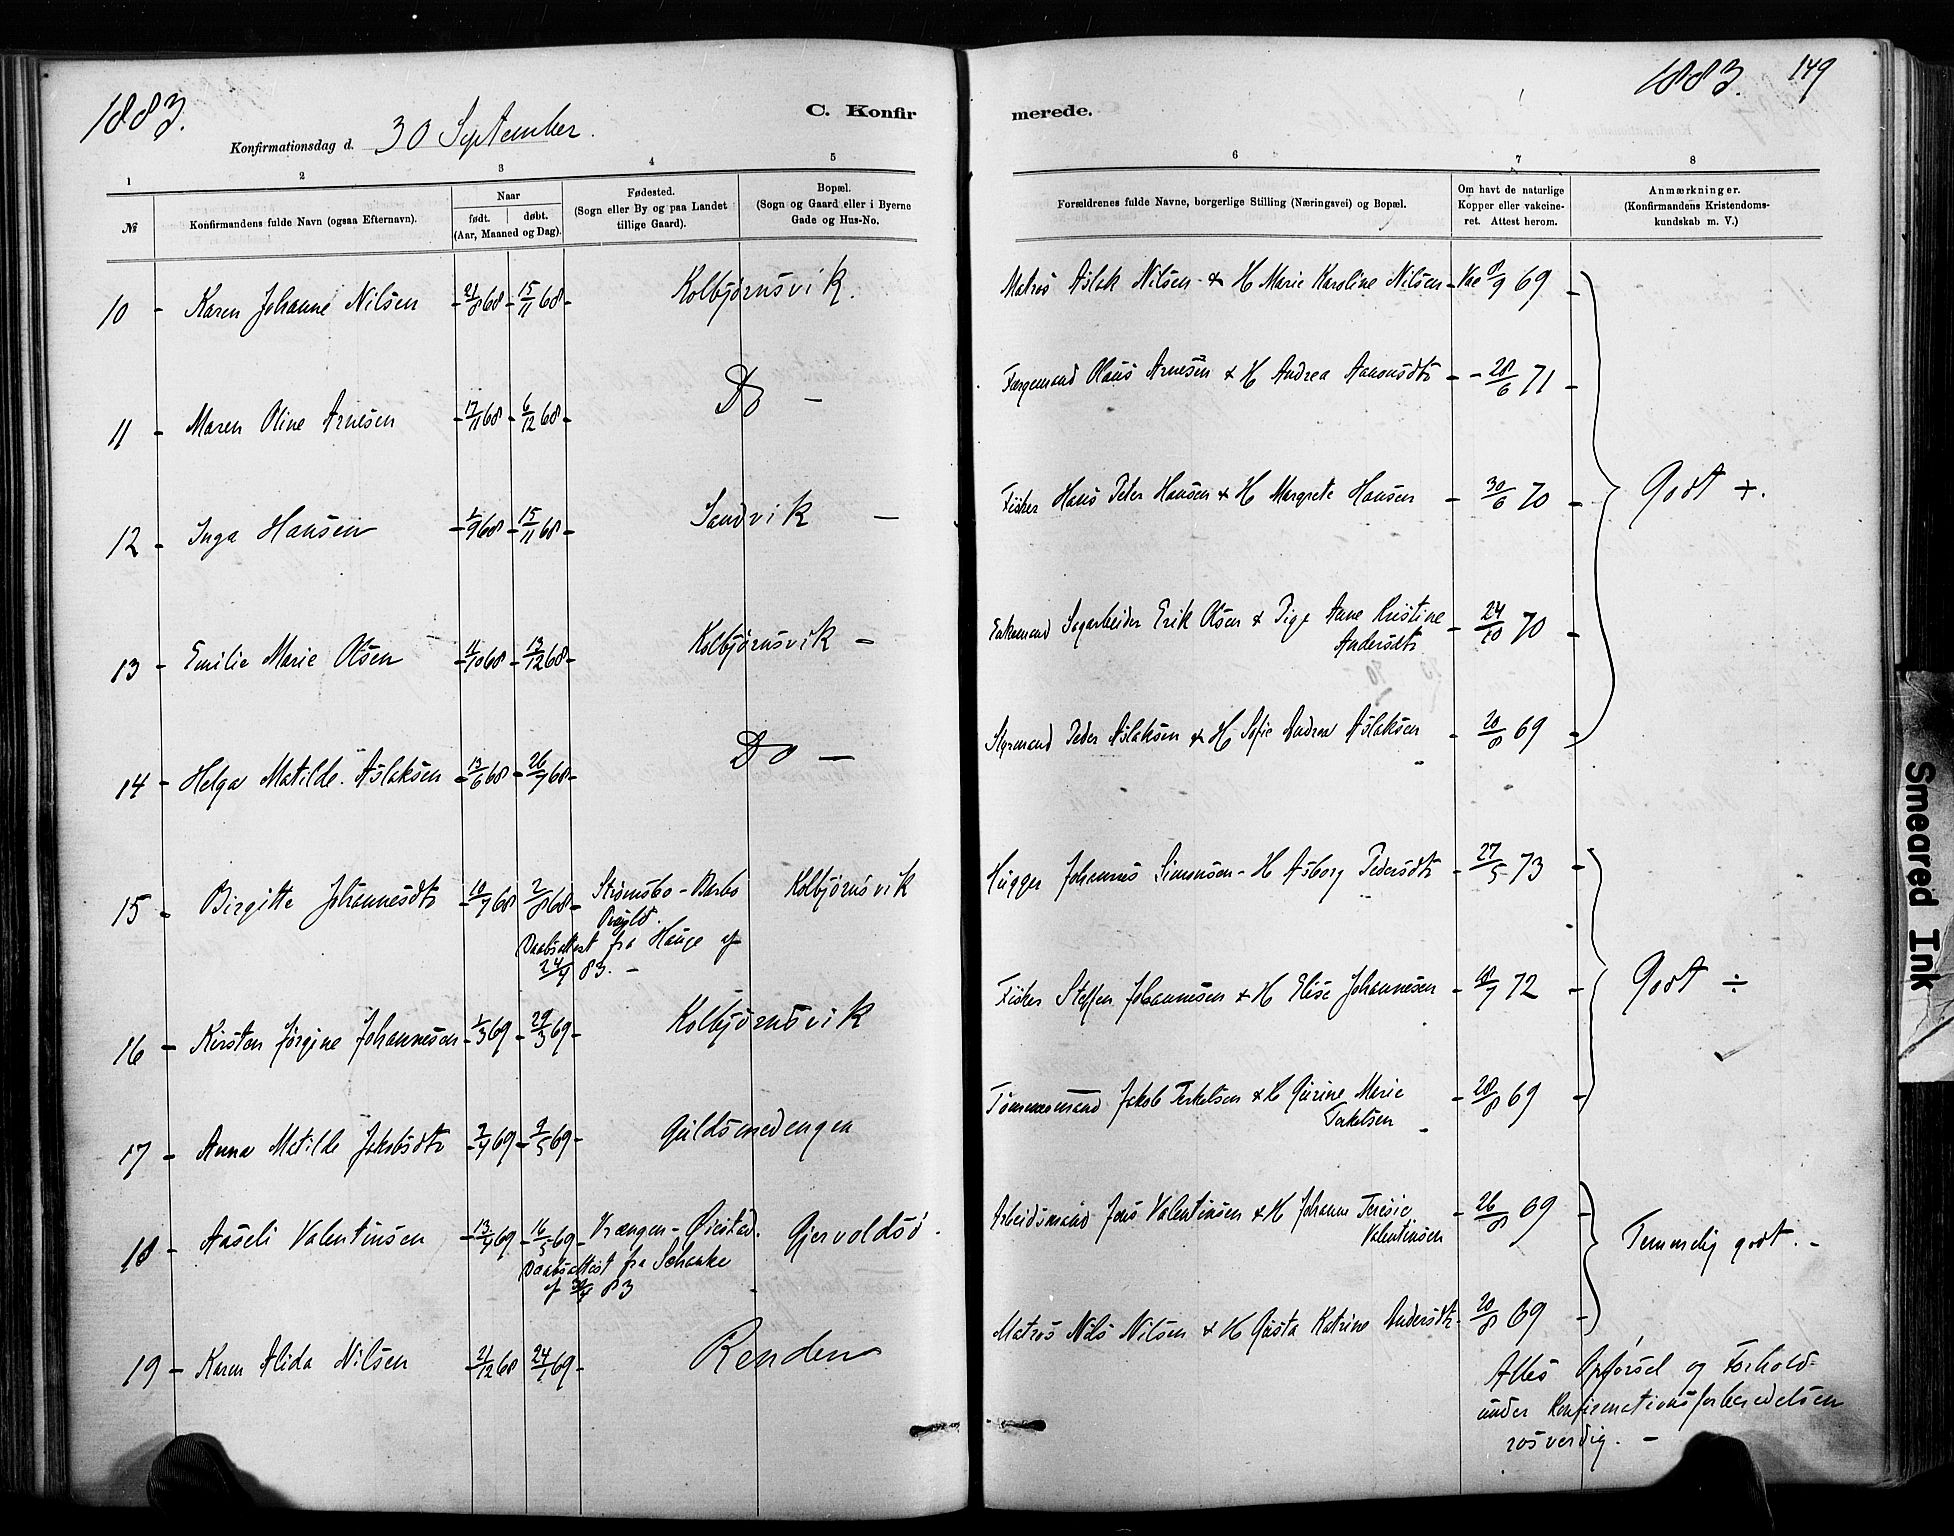 1883.
C. Konfir
Konfirmationsdag d. 30 September.
1 2 3 4 5
№
Konfirmandens fulde Navn (ogsaa Efternavn).
Naar
født. døbt.
(Aar, Maaned og Dag).
Fødested.
(Sogn eller By og paa Landet
tillige Gaard).
Bopæl.
(Sogn og Gaard eller i Byerne
Gade og Hus-No.
10 - Karen Johanne Nilsen - 21/8 68 - 15/11 68 - Kolbjørnsvik.
11 - Maren Oline Arnesen - 17/11 68 - 6/12 68 - Do -
12 - Inga Hansen - 1/9 68 - 15/11 68 - Sandvik -
13 - Emilie Marie Olsen - 11/10 68 - 13/12 68 - Kolbjørnsvik -
14 - Helga Matilde Aslaksen - 13/6 68 - 26/7 68 - Do -
15 - Birgitte Johannesdtr - 10/7 68 - 2/8 68 - Strømsbo - Barbo Kolbjørnsvik
Daabsattest fra Hauge af
24/4 83. -
16 - Kirsten Jørgine Johannesen - 1/3 69 - 29/3 69 - Kolbjørnsvik
17 - Anna Matilde Jakobsdtr - 2/4 69 - 9/5 69 - Guldsmedengen
18 - Aaseli Valentinsen - 13/4 69 - 16/5 69 - Vrængen - Øiestad. Gjervoldsø.
Daabsattest fra Schanke
af 83
19 - Karen Alida Nilsen - 21/12 68 - 24/1 69 - Renden
1883. 149
merede.
6 7 8
Forældrenes fulde Navne, borgerlige Stilling (Næringsvei) og Bopæl.
Om havt de naturlige
Kopper eller vakcine-
ret. Attest herom.
Anmærkninger.
(Konfirmandens Kristendoms-
kundskab m. V.)
Matros Aslak Nilsen & H Marie Karoline Nilsen - Vac 8/9 69 -
Færgemand Olaus Arnesen & H Andrea Aanonsdtr - - 28/6 71 -
Fisker Hans Peter Hansen & H Margrete Hansen - 30/6 70 -
Godt +.
Enkemand Sagarbeider Erik Olsen & Pige Anne Kristine - 24/10 70 -
Andersdtr
Styrmand Peder Aslaksen & H Sofie Andrea Aslaksen - 20/8 69 -
Hugger Johannes Simonsen - H Asborg Pedersdtr - 27/5 73 -
Fisker Steffen Johannesen & H Elise Johannesen - 18/7 72 -
Godt ÷
Tømmermand Jakob Terkelsen & H Gurine Marie - 28/8 69 -
Terkelsen
Arbeidsmand Jens Valentinsen & H Johanne Teresie - 26/8 69 -
Valentinsen
Temmelig godt. -
Matros Nils Nilsen & H Gusta Katrine Andersdtr. - 20/8 69 -
Alles Opførsel og Forhold
under Konfirmationsforberedelsen
rosverdig. -
Smeared Ink